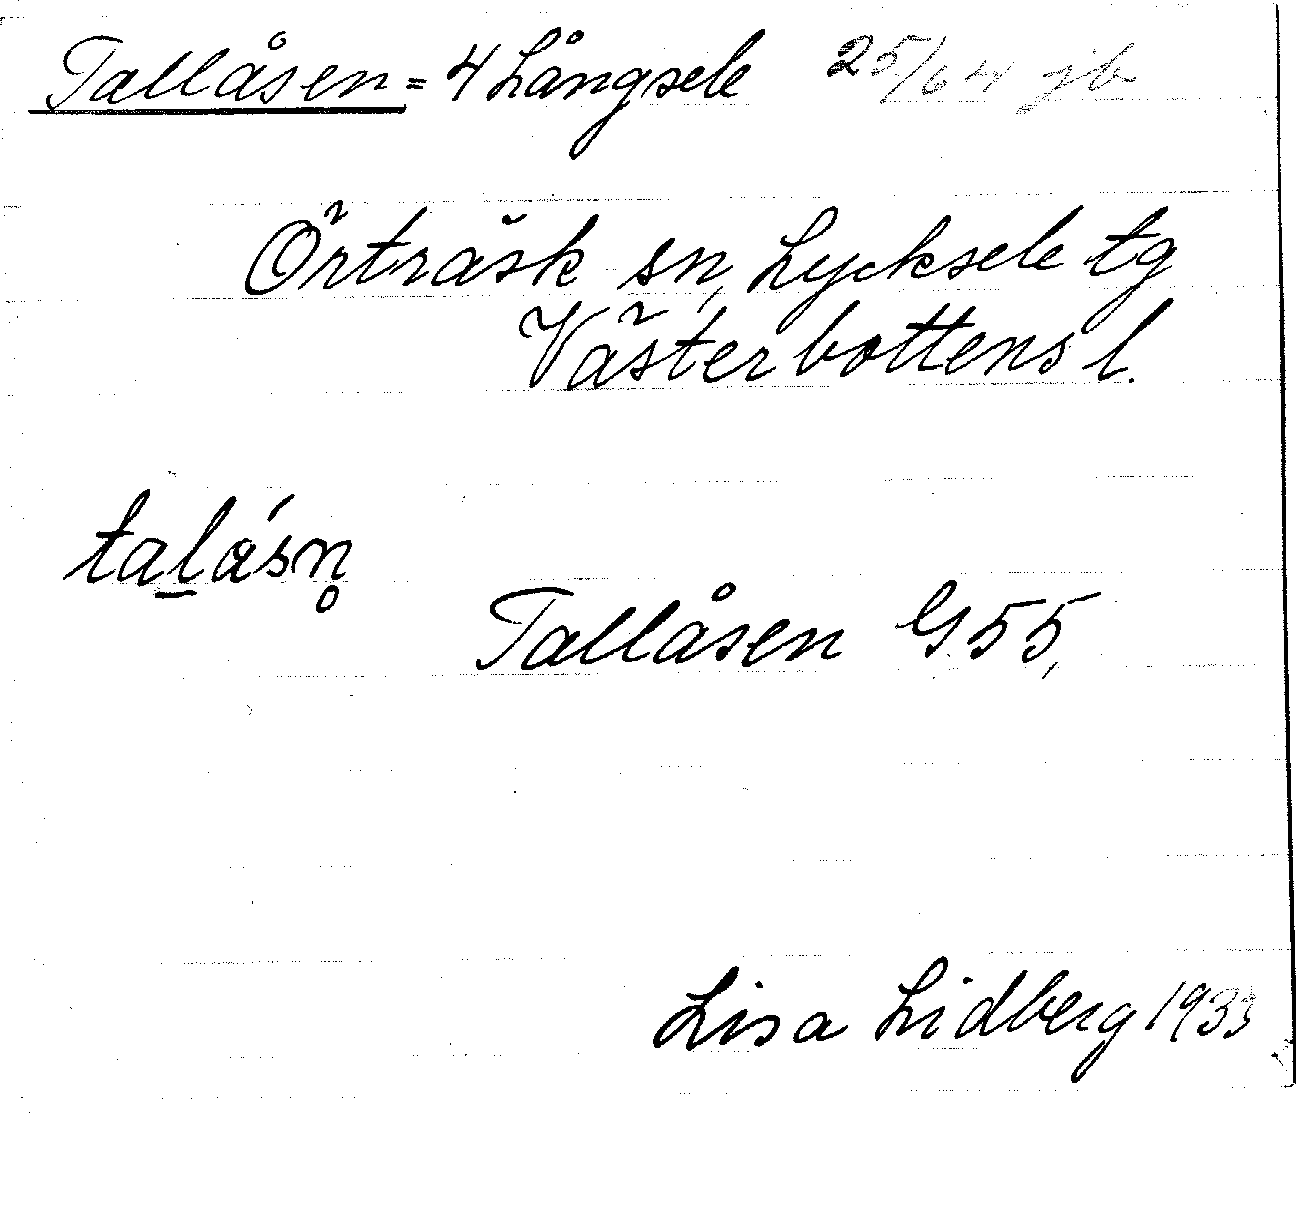 Tallåsen = 4 Långsele 25/64 jb
Örträsk sn, Lycksele tg
Västerbottens l.
tal̲ásn̥
Tallåsen G 55,
Lisa Lidberg 1933